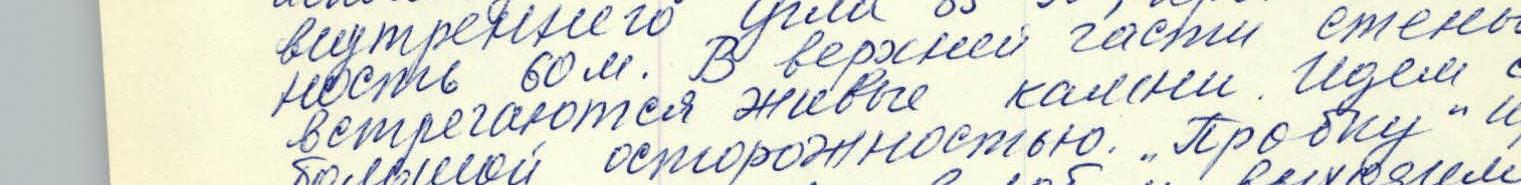 внутреннего угла 85
ность 60м. В верхней части стены
встречаются живые камни. Идем с
большой осторожностью. „Пробку"
выходим